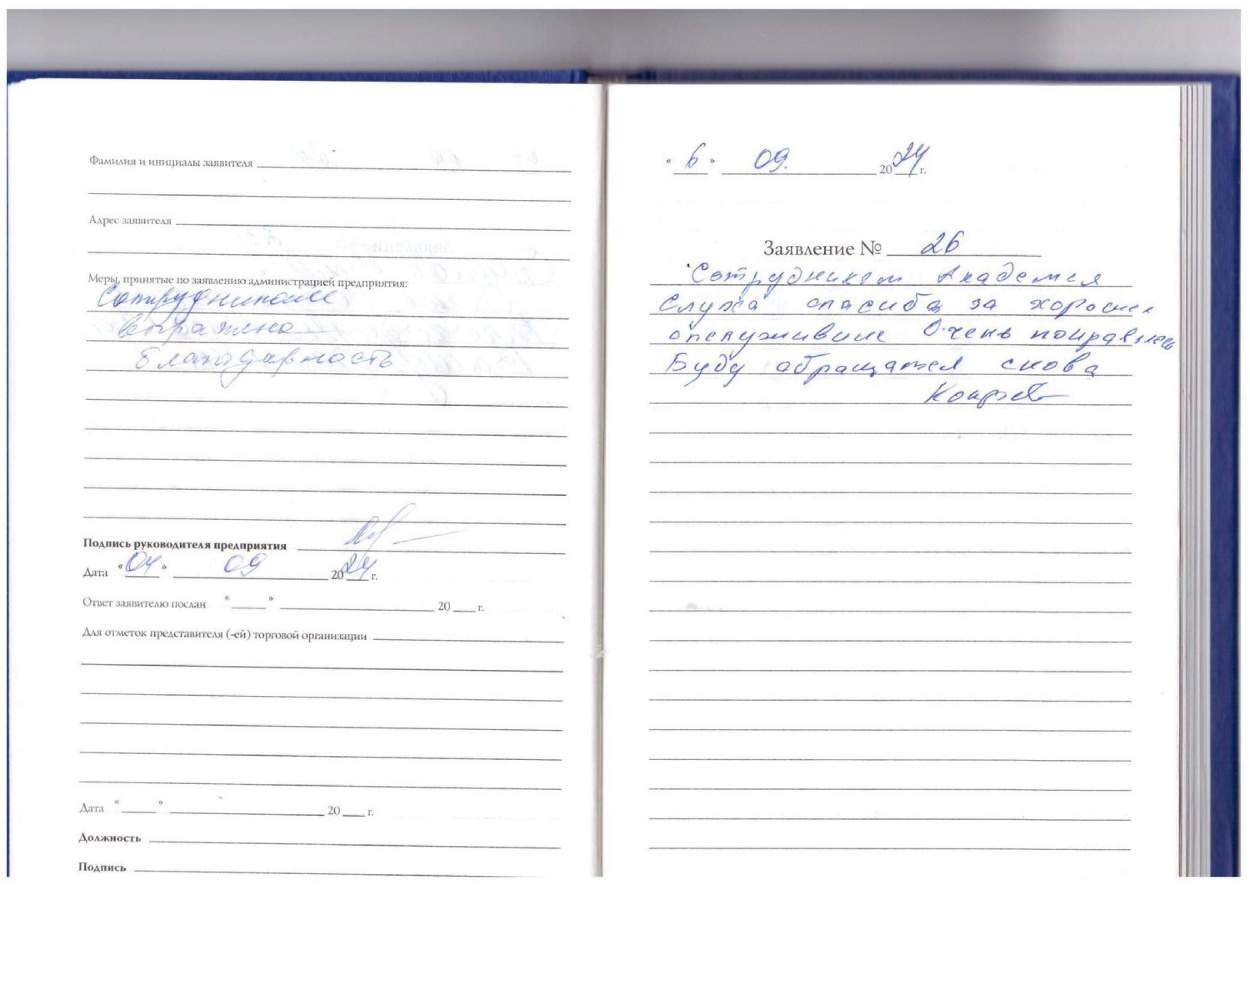 Фамилия и инициалы заявителя
Адрес заявителя
Меры, принятые по заявлению администрацией предприятия:
Сотрудникам
выражена
благодарность
Подпись руководителя предприятия
Дата "04" 09 2024 г.
Ответ заявителю послан " " 20 г.
Для отметок представителя (-ей) торговой организации
Дата " " 20 г.
Должность
Подпись
"6" 09. 2024 г.
Заявление № 26
Сотрудникам Академия
Слуха спасиба за хорошее
опслуживание Очень понравилось
Буду обращатся снова